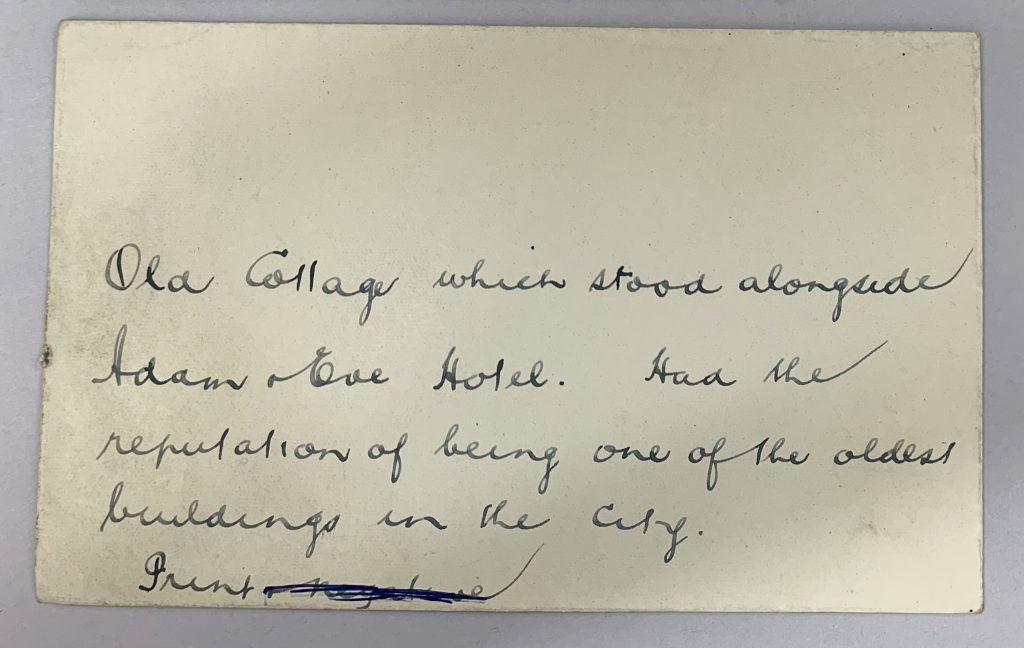 Old Cottage which stood alongside
Adam & Eve Hotel. Had the
reputation of being one of the oldest
buildings in the City.
Print & negative